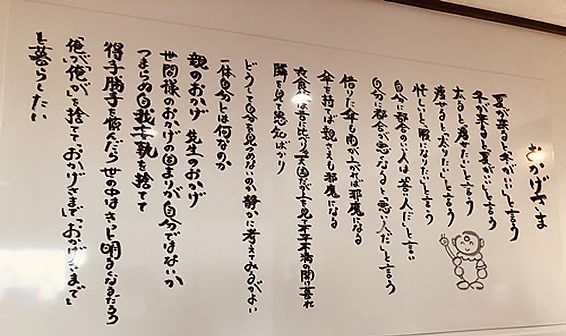 おかげさま
夏が来ると冬がいいと言う
冬が来ると夏がいいと言う
太ると痩せたいと言う
痩せると太りたいと言う
忙しいと暇になりたいと言う
自分に都合のいい人は善い人だと言い
自分に都合が悪くなると悪い人だと言う
借りた傘も雨が上がれば邪魔になる
金を持てば親さえも邪魔になる
衣食住は昔に比べりゃ天国だが上を見て不平不満の明け暮れ
隣を見て愚痴ばかり
どうして自分を見つめないのか静かに考えてみるがよい
一体自分とは何なのか
親のおかげ 先生のおかげ
世間様のおかげの固まりが自分ではないか
つまらぬ自我妄執を捨てて
得手勝手を慎んだら世の中はきっと明るくなるだろう
「俺が」「俺が」を捨てて「おかげさまで」「おかげさまで」と
と暮らしたい